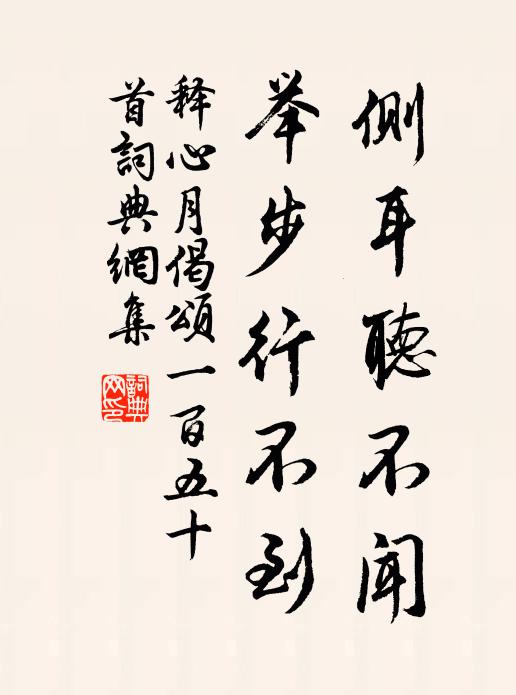 側耳聽不闻
举步行不到
释心月偈頌一百五十
首詞典網集
詞典
网印